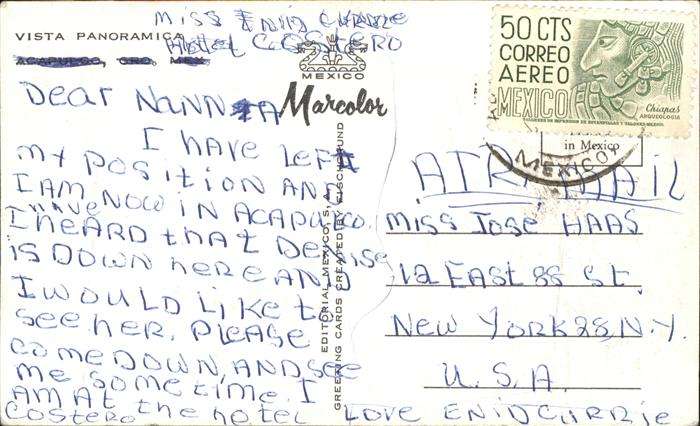 Miss Enid Currie
Hotel Costero
VISTA PANORAMICA
ACAPULCO, GRO. MEX
MEXICO
Marcolor
Dear Nanna
I HAVE LEFT
MY POSITION AND
I AM NOW IN ACAPULCO.
I HAVE HEARD that DENISE
IS DOWN HERE AND
I WOULD LIKE to
See her. PLEASE
COME DOWN, AND SEE
ME SOMETIME. I
AM At the hotel
COSTERO LOVE ENID CURRIE
EDITORIAL MEXICO, S.A.
GREETING CARDS CREATED BY FISCHGRUND
50 CTS
CORREO
AEREO
MEXICO
Chiapas
ARQUEOLOGIA
in Mexico
MEXICO
AIR MAIL
MISS JOSE HAAS
12 EAST 88 St.
NEW YORK 28, N.Y.
U.S.A.